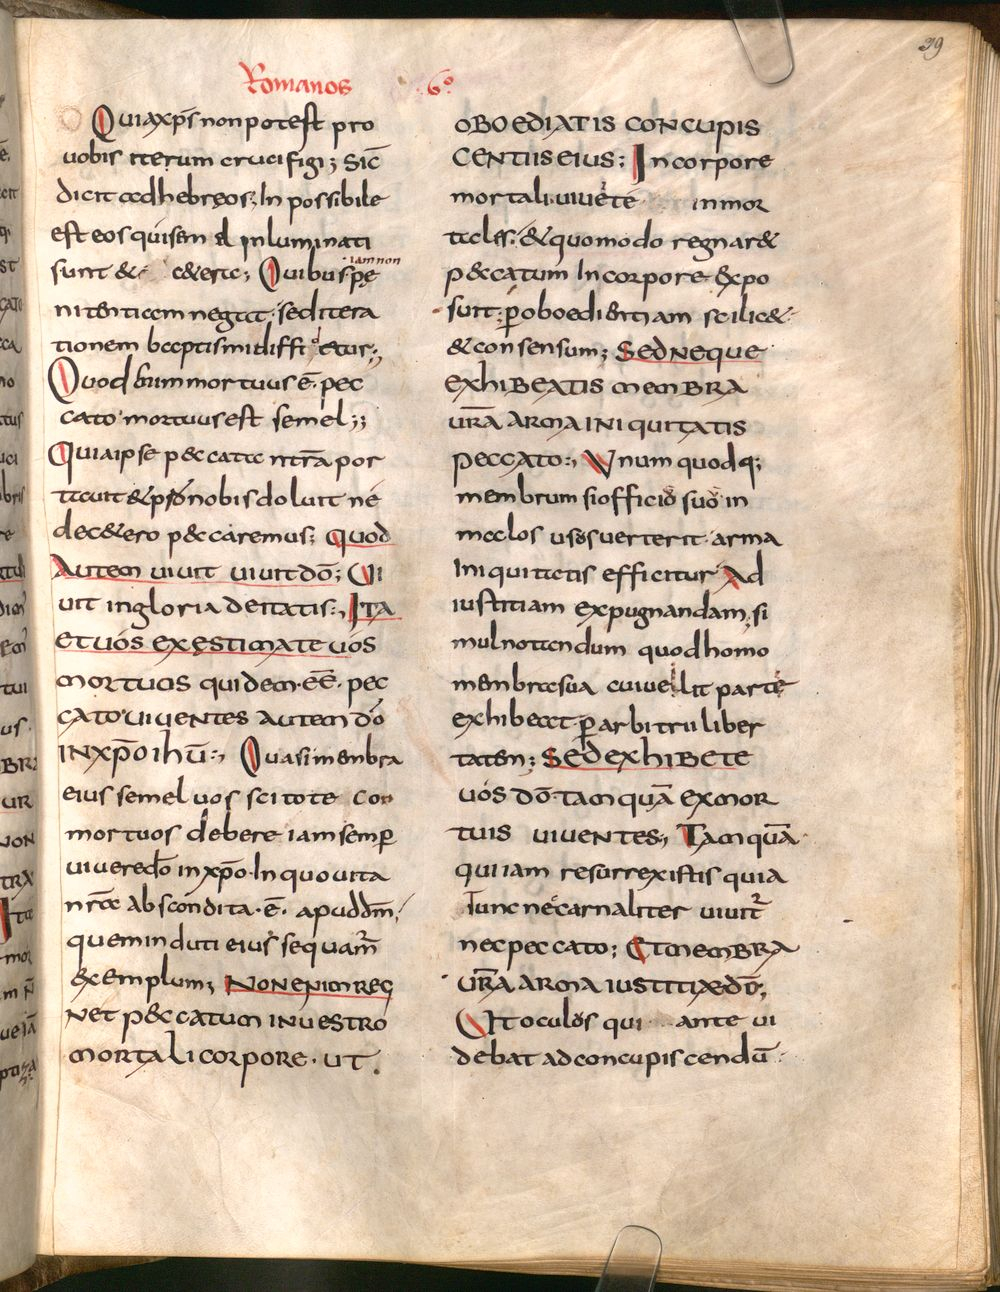 39
Romanos 6º
Quia xp̄s non potest pro
uobis iterum crucifigi; Sic̄
dicit ad hebręos; In possibile
est eos qui semel inluminati
sunt & cetere; Quibus pę
iam non
nitentiam negat· sed itera
tionem baptismi diffitetur;
Quod enim mortuus ē· pec
cato· mortuus est semel;
Quia ipse peccata nr̄a por
tauit & pro nobis doluit ne
de cetero peccaremus; quod
autem uiuit uiuit dō; Ui
uit in gloria deitatis; Ita
et uós exęstimate uós
mortuos quidem· eē· pec
cato· uiuentes autem dō
in xp̄o ihū; Quasi membra
eius semel uos scitote con
mortuos debere iam semp̄
uiuere dō in xp̄o· In quo uita
nr̄a abscondita· ē· apud dm̄;
quem induti eius sequam̄
exemplum; Non enim reg
net peccatum in uestro
mortali corpore· ut
oboediatis concupis
centiis eius; In corpore
mortali uiuete in mor
tales· & quomodo regnar&
peccatum In corpore expo
suit· p̄ oboedientiam scilic&
& consensum; Sed neque
exhibeatis membra
ur̄a arma iniquitatis
peccato; Unum quodq;
membrum si officio suo in
malos usus uerterit· arma
Iniquitatis efficitur Ad
iustitiam expugnandam; si
mul notandum quod homo
membra sua cui uelit parte
exhibeat p̄ arbitrii liber
tatem; Sed exhibete
uós dō· tamquā ex mor
tuis uiuentes; Tamquā
qui iam resurrexistis quia
Tunc nec carnaliter uiuit̄
nec peccato; Et membra
ur̄a arma iustitiæ dō;
Ut oculus qui ante ui
debat ad concupiscendū·